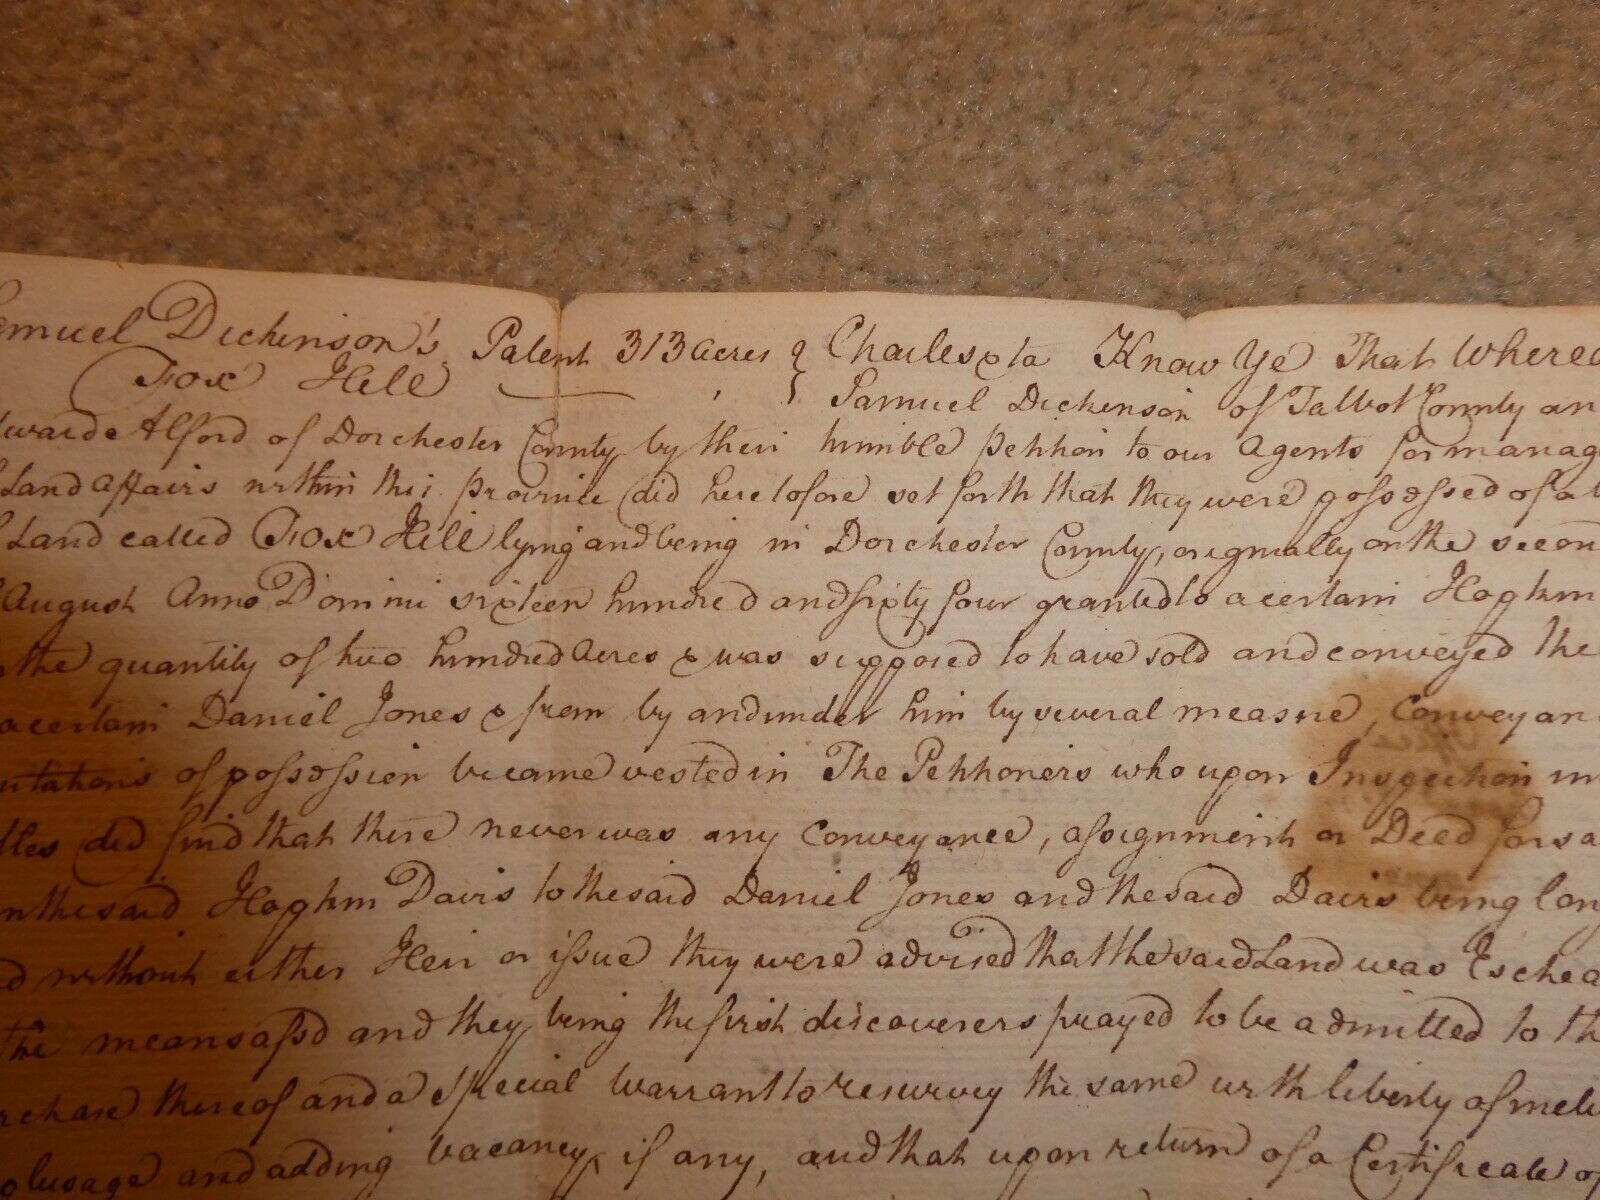 emuel Dickinson's Patent 313 acres } Charles &ta Know Ye That Wherea
Fox Hill } Samuel Dickinson of Talbot County an
dward Alford of Dorchester County by their humble petition to our Agents for manag
Land affairs within this province did heretofore set forth that they were possessed of a
Land called Fox Hill lying and being in Dorchester County, originally on the secon
August Anno Domini sixteen hundred and sixty four granted to a certain Hopkin
the quantity of two hundred acres & was supposed to have sold and conveyed the
a certain Daniel Jones & from by and under him by several measne, Conveyan
utations of possession became vested in The Petitioners who upon Inspection in
tles did find that there never was any Conveyance, assignment or Deed for sa
m the said Hopkin Davis to the said Daniel Jones and the said Davis being lon
d without either Heir or issue they were advised that the said Land was Eschea
the means afsd and they being the first discoverers prayed to be admitted to th
rchase thereof and a Special Warrant to resurvey the same with liberty of
plusage and adding vacancy if any, and that upon return of a Certificate of